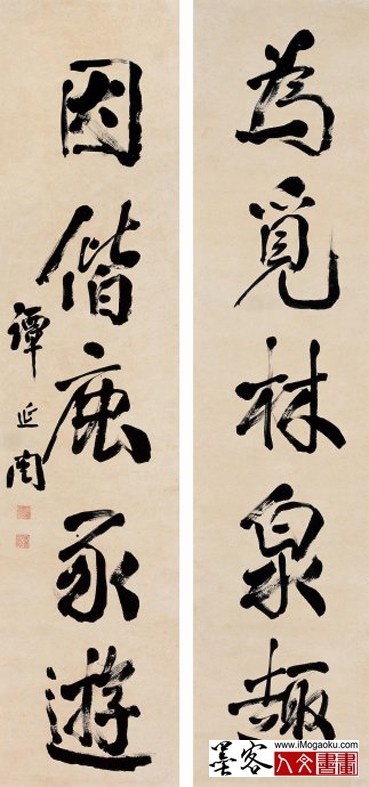 為覓林泉趣
因偕鹿豕遊
譚延闓
墨客
www.iMogaoku.com
人文書畫